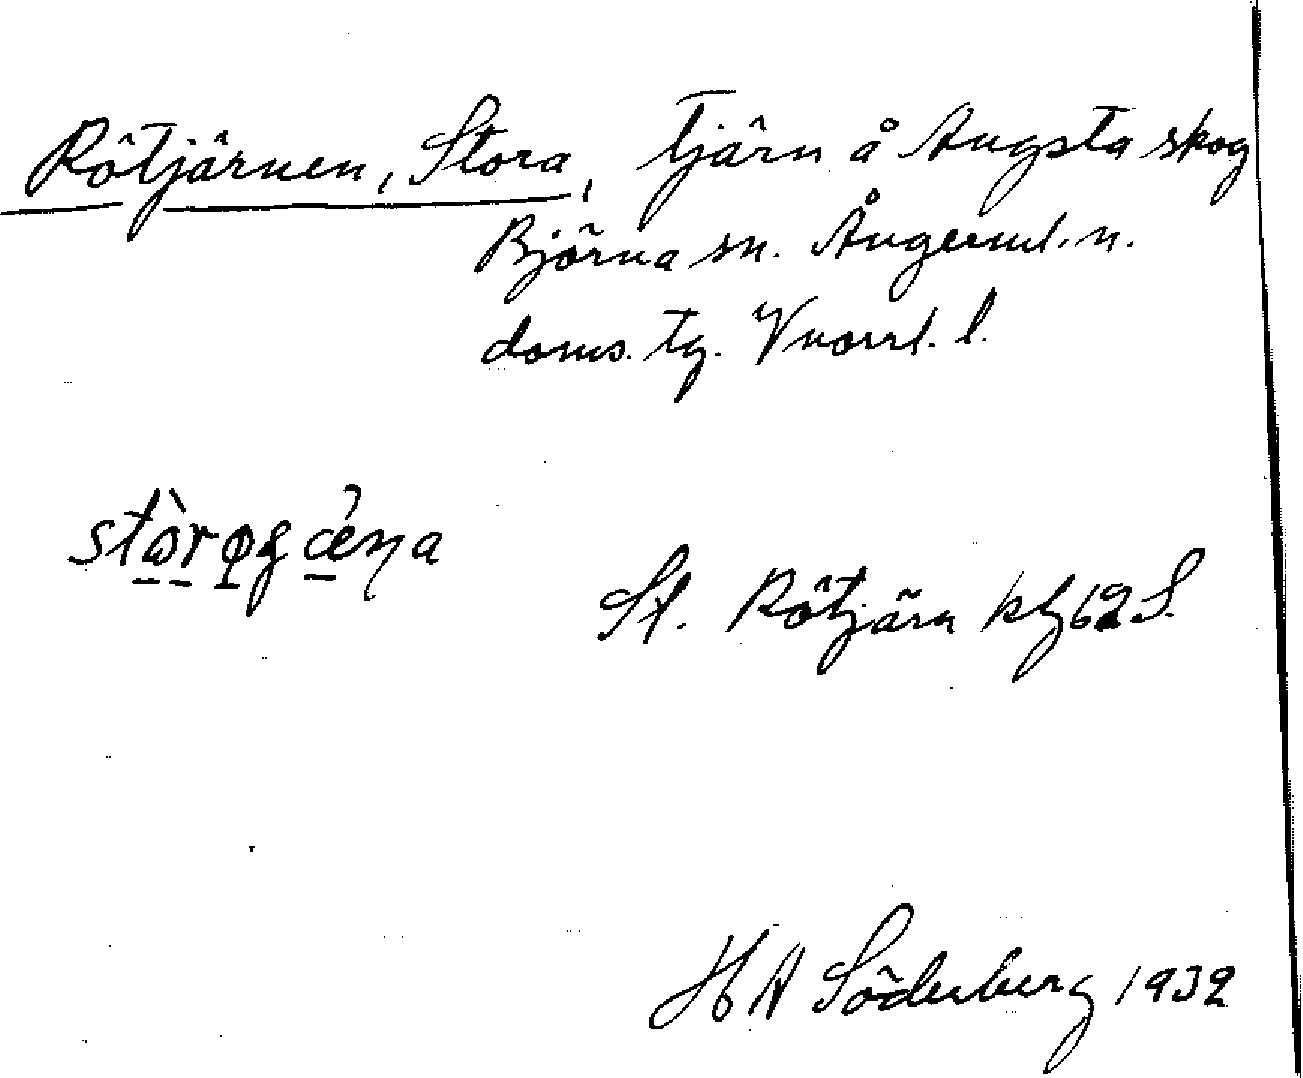 Rötjärnen, Stora, tjärn å Angsta skog
Björna sn. Ångerml. n.
doms. tg. Vnorrl. l.
St. Rötjärn k bl 62 S.
H A Söderberg 1932